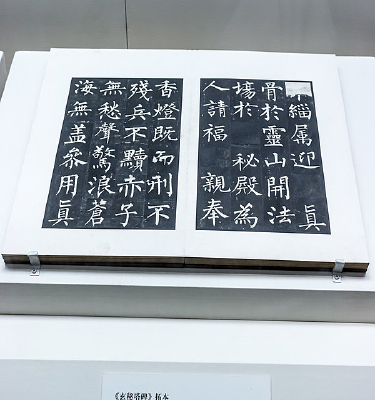 不緇属迎 真
骨於靈山開法
場於 秘殿為
人請福 親奉
香燈既而刑不
殘兵不黷赤子
無愁聲驚浪蒼
海無盖參用真
《玄秘塔碑》拓本